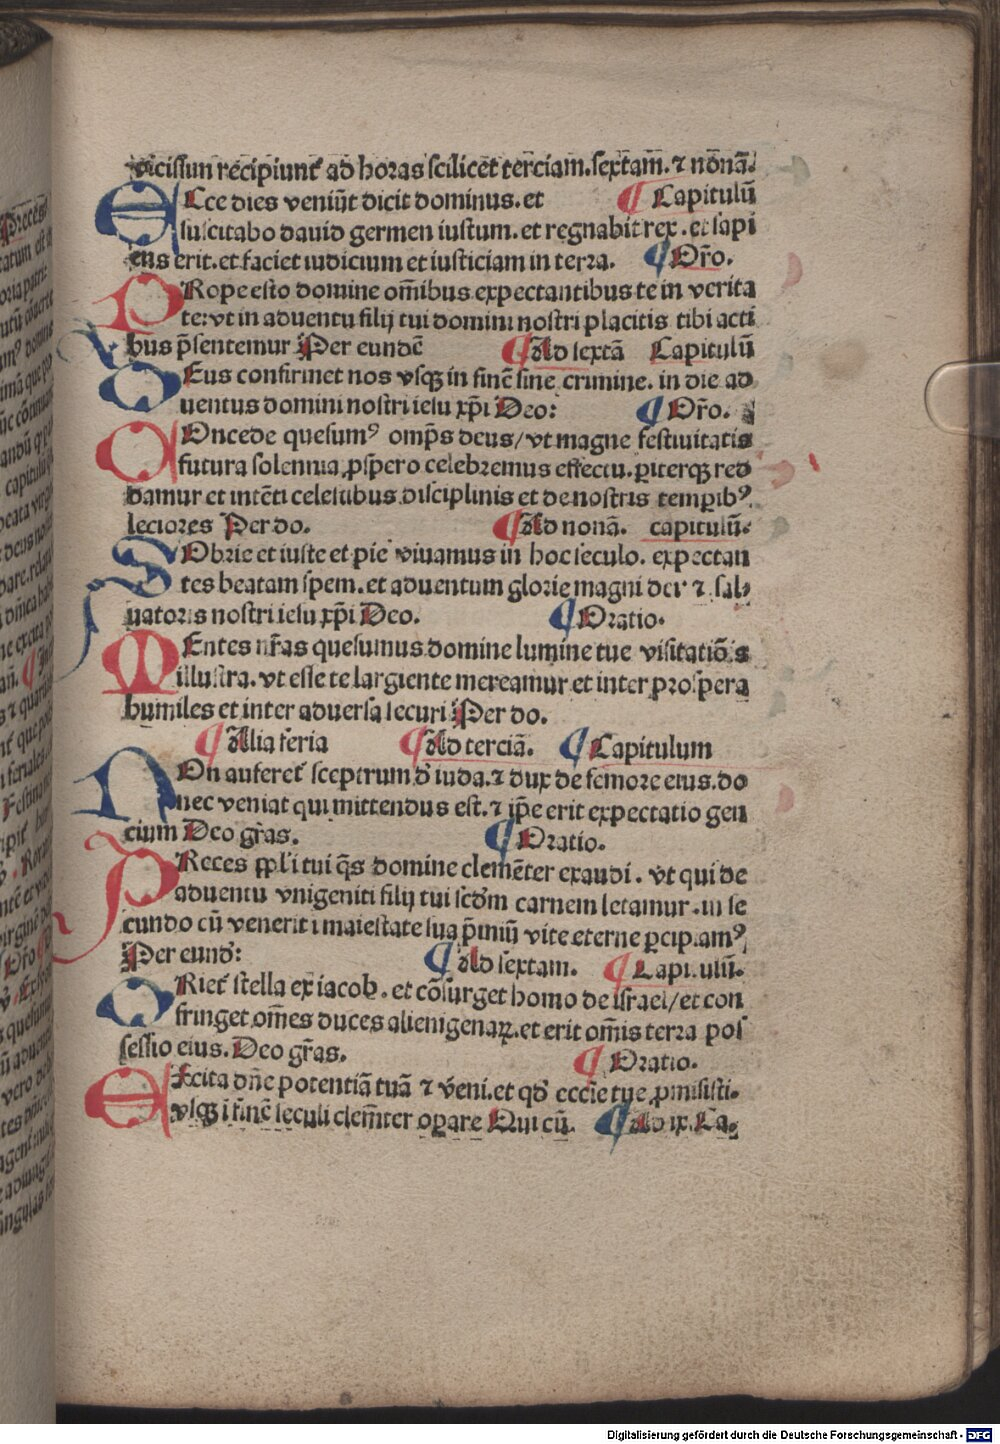 vicissim recipiunt̃ ad horas scilicet terciam.sextam̃.⁊ nõnã.
ECce dies veniũt dicit dominus.et ¶ Capitulũ
suscitabo dauid germen iustum.et regnabit rex.et sapi
ens erit.et faciet iudicium et iusticiam in terra. ¶ Or̃o.
PRope esto domine om̃ibus expectantibus te in verita
te:vt in aduentu filij tui domini nostri placitis tibi acti
bus p̃sentemur Per eundẽ ¶ Ad sextã Capitulũ
DEus confirmet nos vsqꝫ in finẽ sine crimine. in die ad
uentus domini nostri iesu xp̃i Deo: ¶ Or̃o.
COncede quesumꝰ omp̃s deus/vt magne festiuitatis
futura solennia ꝓspero celebremus effectu.ꝑiterqꝫ red
damur et intẽti celestibus disciplinis et de nostris temꝑibꝰ
lectiores Per do. ¶ Ad nonã. capitulũ.
SObrie et iuste et pie viuamus in hoc seculo. expectan
tes beatam spem.et aduentum glorie magni dei ⁊ sal⸗
uatoris nostri iesu xp̃i Deo. ¶ Oratio.
MEntes nr̃as quesumus domine lumine tue visitatiõis
illustra.vt esse te largiente mereamur et inter prospera
humiles et inter aduersa securi Per do.
¶ Alia feria ¶ Ad terciã. ¶ Capitulum
NOn auferet̃ sceptrum d̃ iuda.⁊ dux de femore eius.do
nec veniat qui mittendus est.⁊ ip̃e erit expectatio gen
cium Deo gr̃as. ¶ Oratio.
PReces pp̃l'i tui q̃s domine clemẽter exaudi. vt qui de
aduentu vnigeniti filij tui scd̃m carnem letamur.in se
cundo cũ venerit i maiestate sua p̃miũ vite eterne ꝑcipiamꝰ
Per eund̃: ¶ Ad sextam. ¶ Capitulũ.
ORiet̃ stella ex iacob.et cõsurget homo de israel/et con
fringet om̃es duces alienigenaꝝ.et erit om̃is terra pos
sessio eius. Deo gr̃as. ¶ Oratio.
EXcita dñe potentiã tuã ⁊ veni.et qd̃ eccl̃ie tue ꝓmisisti.
vsqꝫ i finẽ seculi clem̃ter oꝑare Qui cũ. ¶ Ad ix. Ca.
Digitalisierung gefördert durch die Deutsche Forschungsgemeinschaft - DFG